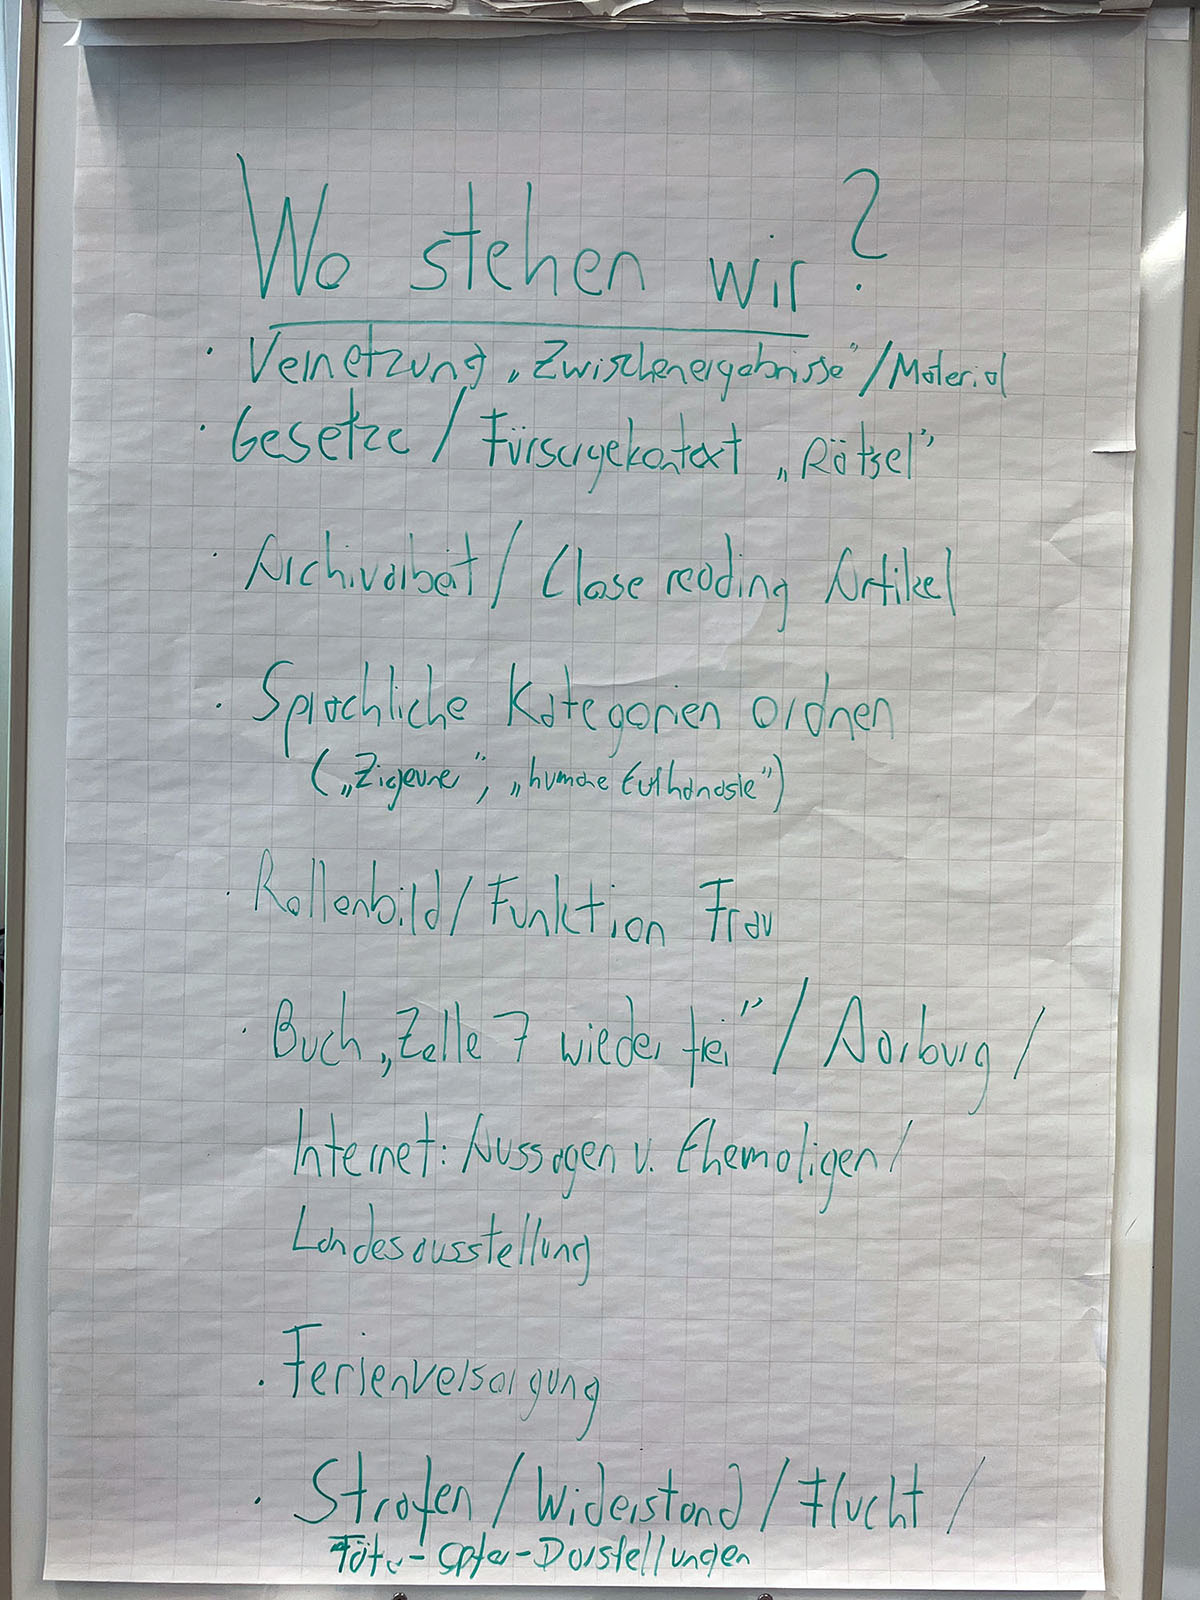 Wo stehen wir?
· Vernetzung „Zwischenergebnisse“ / Material
· Gesetze / Fürsorgekontext „Rätsel“
· Archivarbeit / Close reading Artikel
· Sprachliche Kategorien ordnen
(„Zigeuner“, „humane Euthanasie“)
· Rollenbild / Funktion Frau
· Buch „Zelle 7 wieder frei“ / Aarburg /
Internet: Aussagen v. Ehemaligen /
Landesausstellung
· Ferienversorgung
· Strafen / Widerstand / Flucht /
Täter-Opfer-Darstellungen